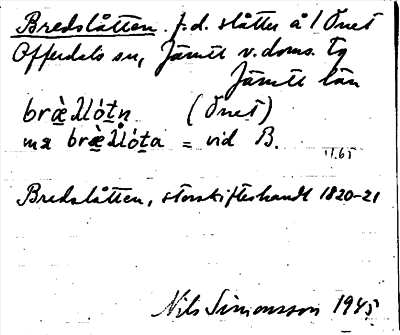 Bredslåtten f.d. slåtter å / Önet
Offerdals sn, Jämtl v. doms. tg
Jämtl län
bræ̀ʌʌót̥n (Önet)
ma bræ̀ʌʌót̥a = vid B.
11.65
Bredslåtten, storskifteshandl 1820-21
Nils Simonsson 1945